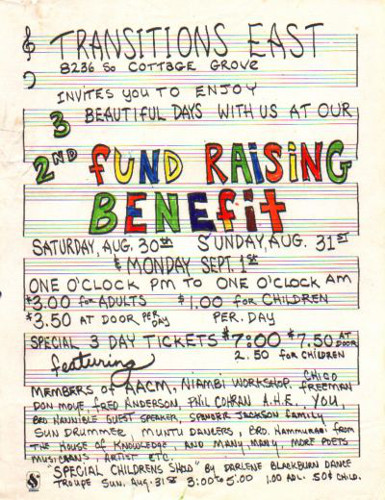 TRANSITIONS EAST
8236 So COTTAGE GROVE
INVITES YOU TO ENJOY
3 BEAUTIFUL DAYS WITH US AT OUR
2ND FUND RAISING
BENEFIT
SATURDAY, AUG. 30th SUNDAY, AUG. 31ST
& MONDAY SEPT. 1st
ONE O'CLOCK PM TO ONE O'CLOCK AM
$3.00 for ADULTS $1.00 for CHILDREN
$3.50 AT DOOR PER DAY PER. DAY
SPECIAL 3 DAY TICKETS $7:00 $7.50 AT DOOR
2.50 for CHILDREN
featuring
MEMBERS OF AACM, NIAMBI WORKSHOP, CHICO FREEMAN
DON MOYE, FRED ANDERSON, PHIL COHRAN A.H.E. YOU,
BRO HANNIBLE GUEST SPEAKER, SPENCER JACKSON FAMILY
SUN DRUMMER MUNTU DANCERS, BRO. HAMMURABI FROM
THE HOUSE OF KNOWLEDGE, AND MANY, MANY MORE POETS
MUSICIANS, ARTIST ETC.
"SPECIAL CHILDRENS SHOW" BY DARLENE BLACKBURN DANCE
TROUPE SUN. AUG. 31ST 3:00 to 5:00 1.00 ADL. 50¢ CHILD.